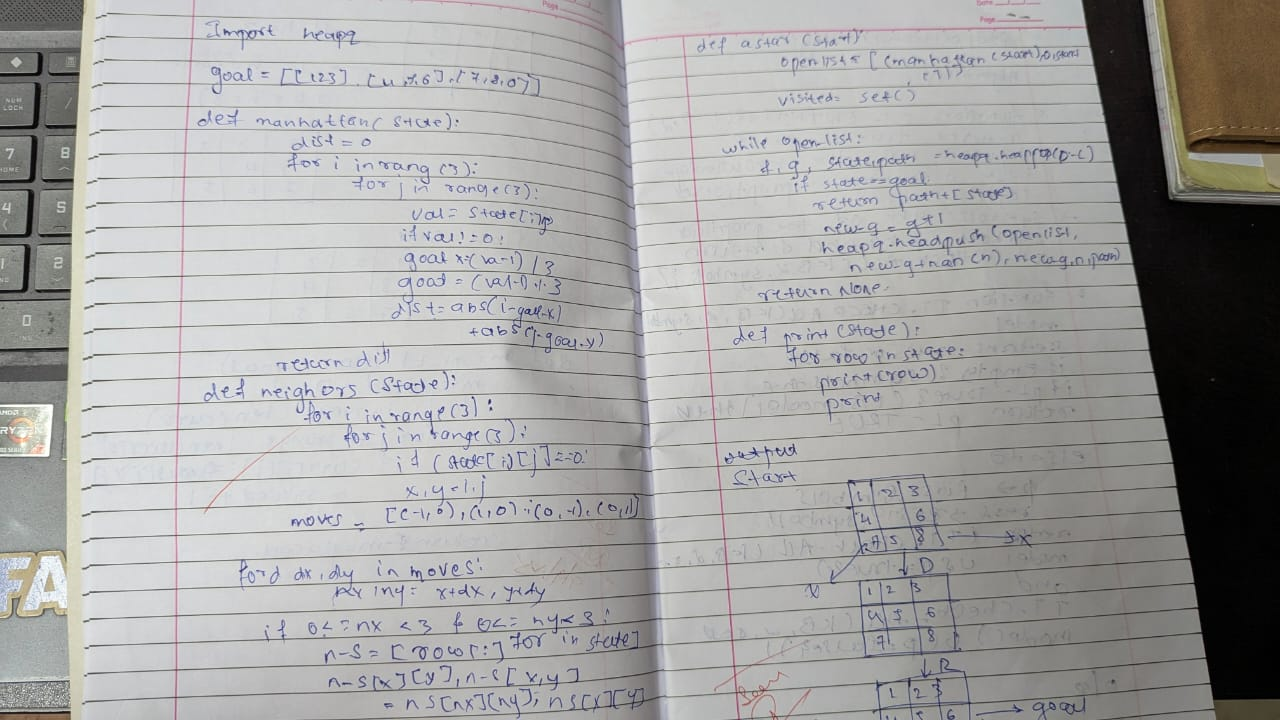 Import heapq
goal = [[123], [4,7,6], [7,8,0]]
def manhattan( State):
dist = 0
for i inrang (3):
for j in range(3):
val = State[i]
if val! = 0:
goal x = (va-1) / 3
goal = (val-1) % 3
dist = abs(i-goal-x)
+abs (j-goal-y)
return dist
def neighors (State):
for i in range(3):
for j in range(3):
if (state[i)[j] ==0:
x, y = i, j
moves = [(-1,0), (1,0), (0,-1), (0,1)]
ford dx, dy in moves:
nx iny = x+dx, y+dy
if 0<=nx <3 & 0<= ny<3:
n-S = [row[:] for in state]
n-S[x][y], n-S[x,y]
= ns[nx][ny], ns[x][y]
def astar (start):
openlist = [(manhattan (start),0,start
, [])]
visited= set()
while open-list:
f, g, state,path = heapq.heappop(O-L)
if state==goal
return path+[State]
new-g = g+1
heapq.headpush (openlist,
new-g+man (n), new-g,n,path)
return None.
def print (State):
for row in state:
print(row)
print
output
Start
1 2 3
4 6
7 5 8
X
D
1 2 3
4 5 6
7 8
R
1 2 3
4 5 6
goal
Seen
Page
Date
Page
NUM
LOCK
7
8
4
5
1
2
0
AMD
RYZEN
FA